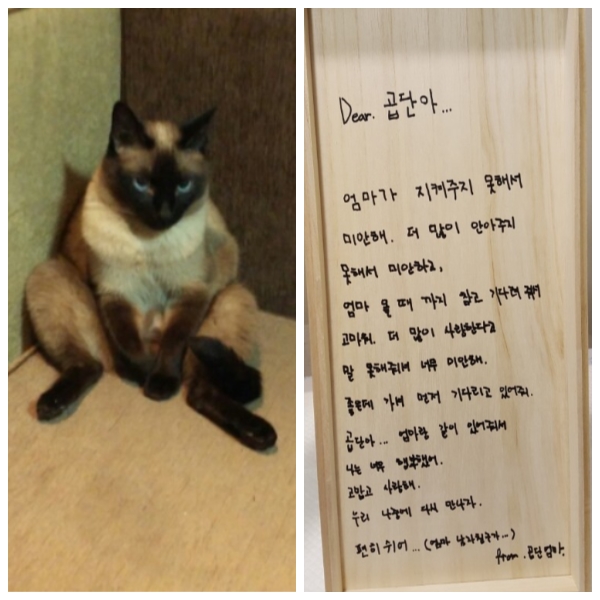 Dear. 곱단아...
엄마가 지켜주지 못해서
미안해. 더 많이 안아주지
못해서 미안하고,
엄마 올 때 까지 참고 기다려 줘서
고마워. 더 많이 사랑한다고
말 못해줘서 너무 미안해.
좋은데 가서 먼저 기다리고 있어줘.
곱단아... 엄마랑 같이 있어줘서
나는 너무 행복했어.
고맙고 사랑해.
우리 나중에 다시 만나자.
편히 쉬어... (엄마 남자친구가...)
from. 곱단엄마.